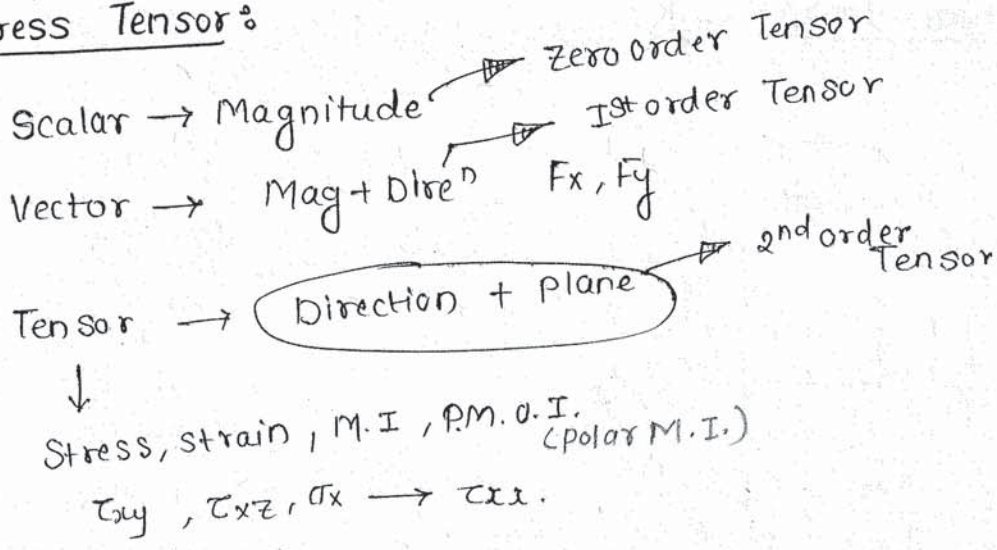 ress Tensor:
Scalar → Magnitude Zero order Tensor
Vector → Mag + Direⁿ Ist order Tensor
Fx, Fy
Tensor → Direction + Plane 2nd order Tensor
↓
Stress, strain, M.I, P.M.O.I.
(polar M.I.)
τxy, τxz, σx → τxx.